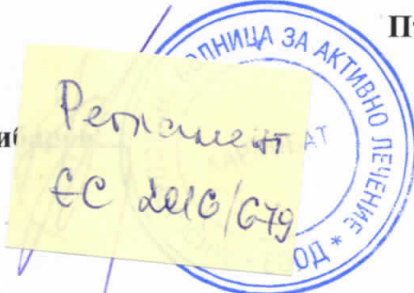 П
БОЛНИЦА ЗА АКТИВНО ЛЕЧЕНИЕ * ДО
АТ
Регламент
ЕС 2016/679